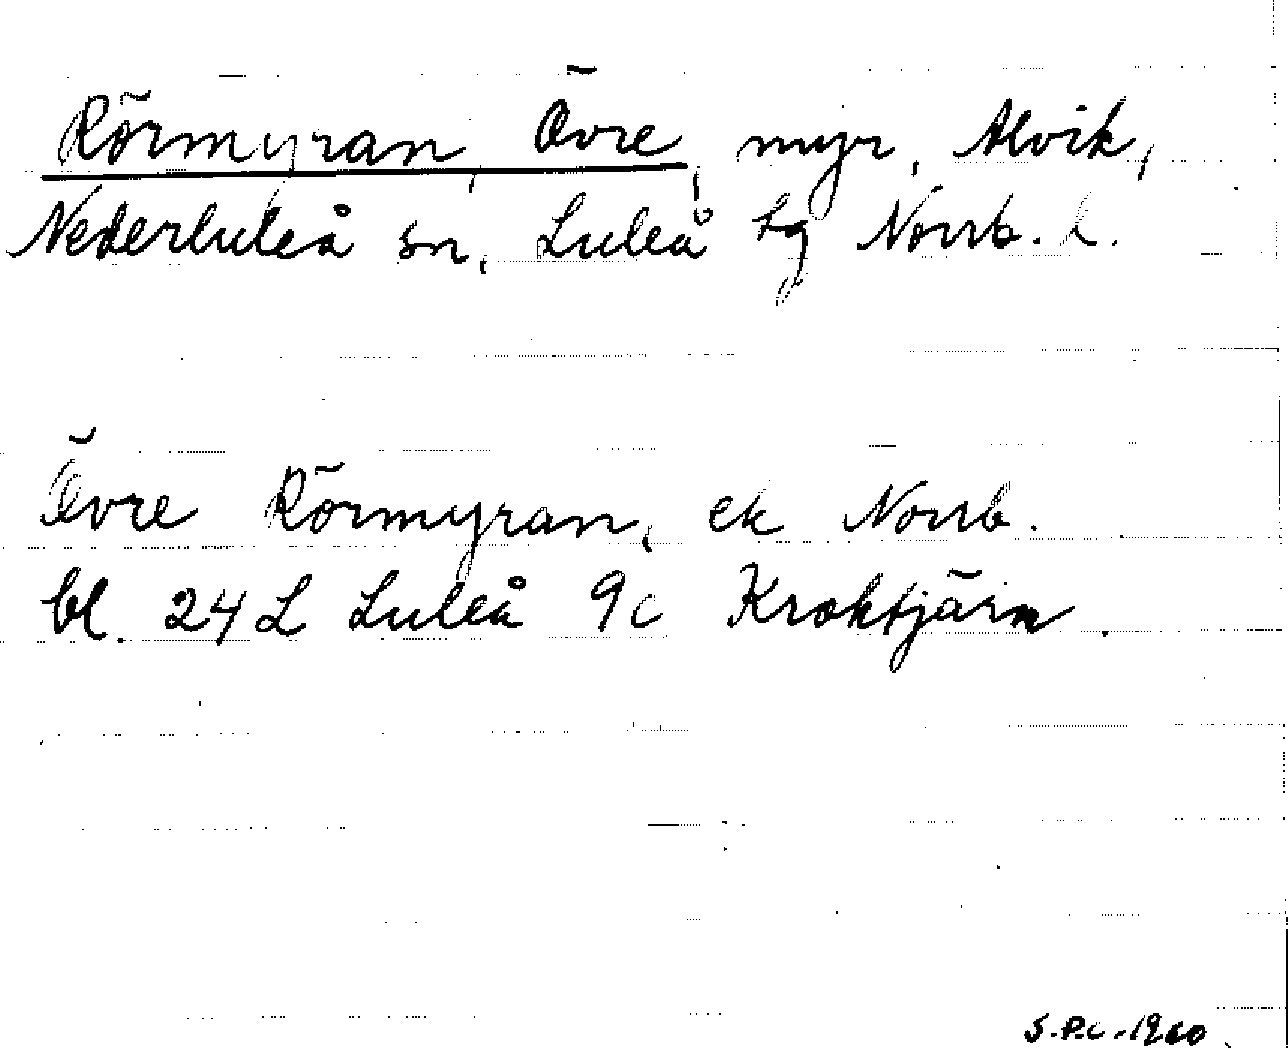 Rörmyran, Övre, myr, Alvik,
Nederluleå sn, Luleå tg Norrb. l.
Övre Rörmyran, ek Norrb.
bl. 24L Luleå 9c Kroktjärn.
S.P.C. 1960